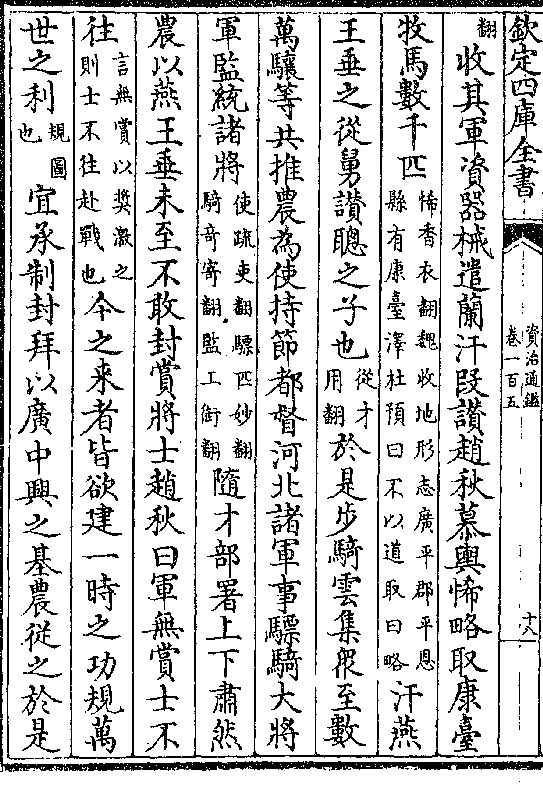 欽定四庫全書
資治通鑑
卷一百五
十八
翻收其軍資器械遣蘭汗段讃趙秋慕輿悕略取康臺
牧馬數千匹悕香衣翻魏收地形志廣平郡平恩縣有康臺澤杜預曰不以道取曰略汗燕
王垂之從舅讃聰之子也從才用翻於是步騎雲集衆至數
萬驤等共推農為使持節都督河北諸軍事驃騎大將
軍監統諸將使疏吏翻驃匹妙翻騎奇寄翻監工銜翻隨才部署上下肅然
農以燕王垂未至不敢封賞將士趙秋曰軍無賞士不
往言無賞以奬激之則士不往赴戰也今之来者皆欲建一時之功規萬
世之利規圖也宜承制封拜以廣中興之基農從之於是